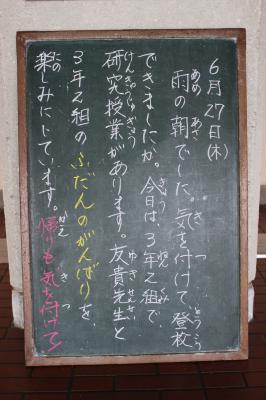 6月27日(木)
雨の朝でした。気を付けて、登校
できましたか。今日は、3年2組で、
研究授業があります。友貴先生と
3年2組のふだんのがんばりを、
楽しみにしています。帰りも気を付けて!